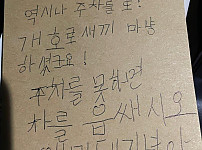 역시나 주차를 또!
개호로새끼 마냥
하셨군요!
주차를 못하면
차를 음쌔시오